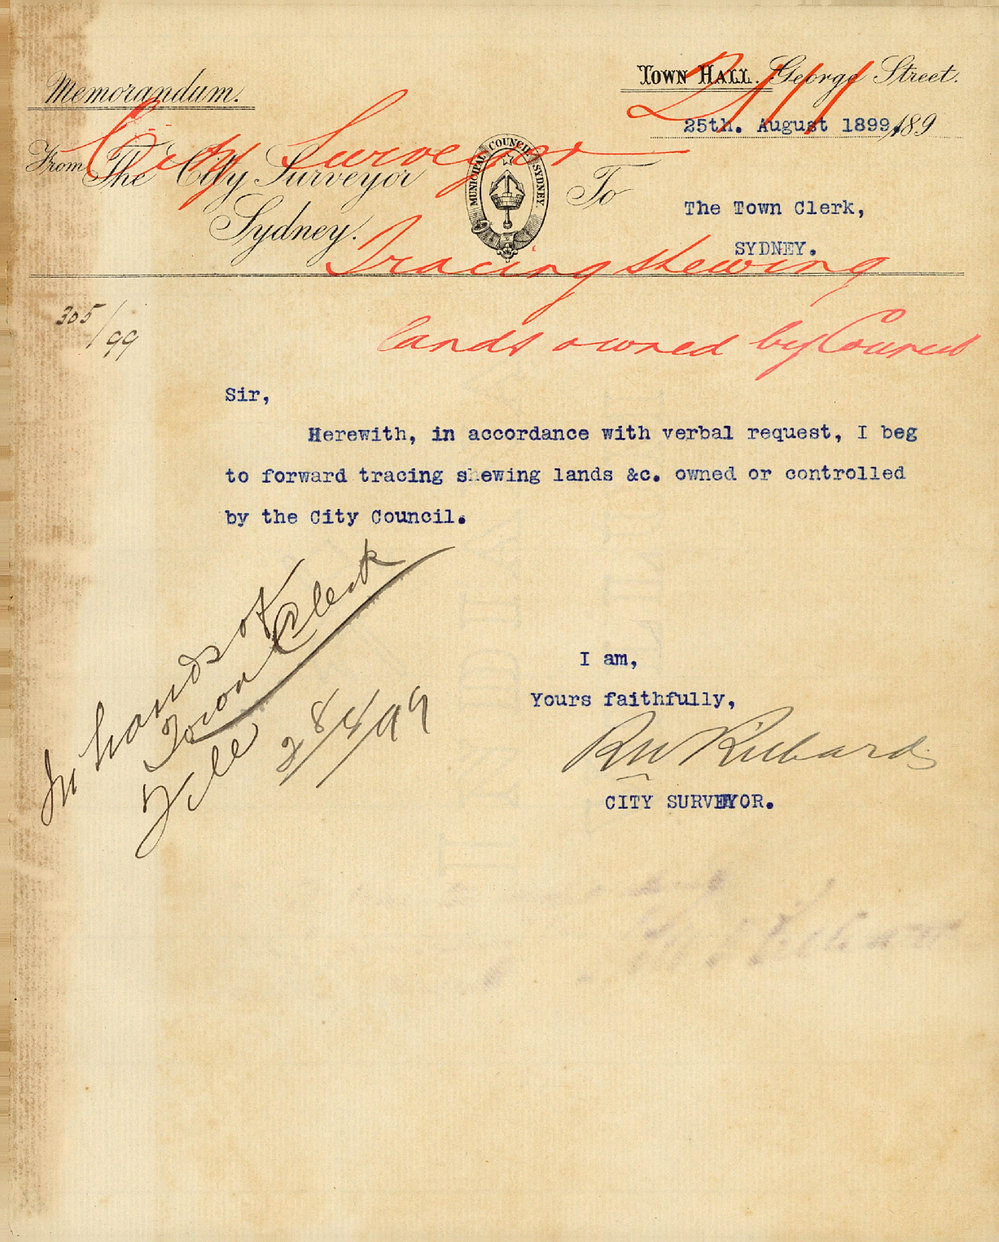 Memorandum.
TOWN HALL. George Street.
25th. August 1899, 189
From The City Surveyor
Sydney.
MUNICIPAL COUNCIL SYDNEY.
To
The Town Clerk,
SYDNEY.
City Surveyor
Tracing shewing
lands owned by Council
305/99
Sir,
Herewith, in accordance with verbal request, I beg
to forward tracing shewing lands &c. owned or controlled
by the City Council.
In hands of
Town Clerk
I am,
Yours faithfully,
RW Richards
CITY SURVEYOR.